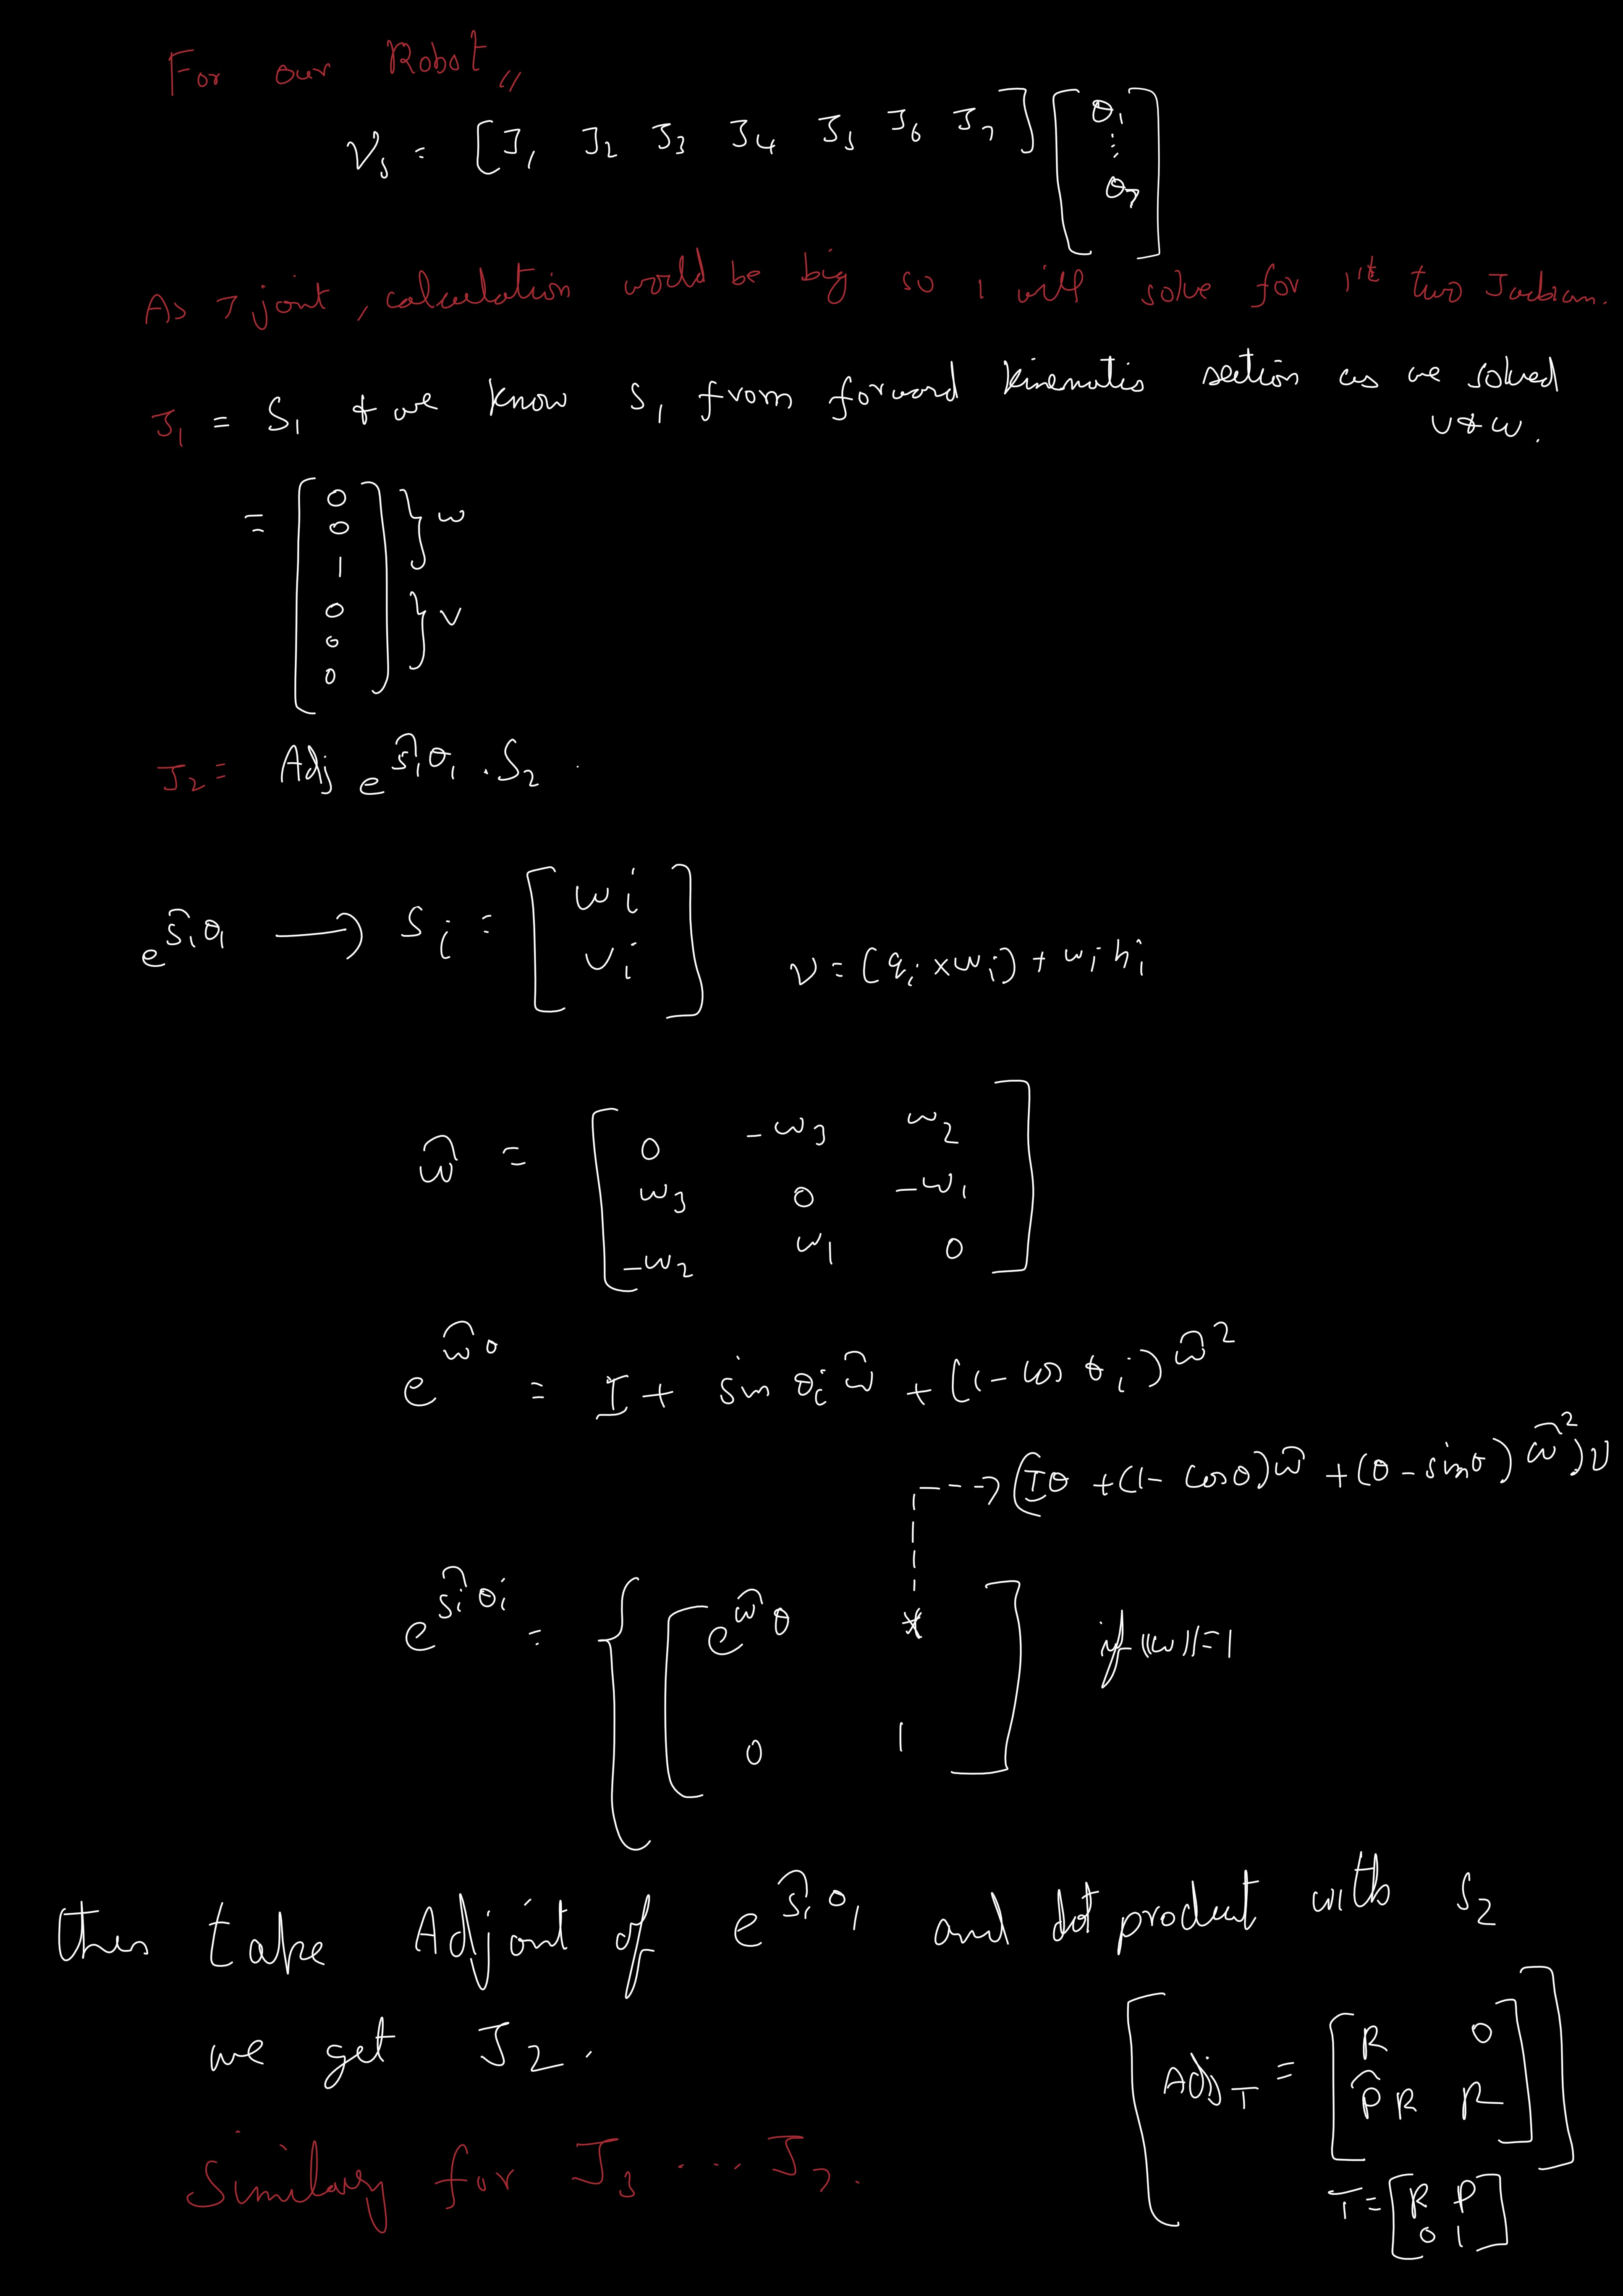 For our Robot,,
𝒱s = [J₁ J₂ J₃ J₄ J₅ J₆ J₇] [θ₁ ⋮ θ₇]
As 7 joint, calculation would be big so I will solve for 1st two Jacbian.
J₁ = S₁ & we know S₁ from forward kinematis section as we solved
v & ω.
= [0 0 1 0 0 0] } ω } v
J₂ = Adj e^{ŝ₁θ₁} . S₂ .
e^{ŝ₁θ₁} → Sᵢ = [ωᵢ vᵢ] v = (qᵢ × ωᵢ) + ωᵢ hᵢ
ω̂ = [0 -ω₃ ω₂
ω₃ 0 -ω₁
-ω₂ ω₁ 0]
e^{ω̂θ} = I + sin θᵢ ω̂ + (1 - cos θᵢ) ω̂²
--→ (Iθ + (1 - cosθ)ω̂ + (θ - sinθ) ω̂²)v
e^{ŝᵢθᵢ} = { [e^{ω̂θ} *
0 1] if ||ω||=1
then take Adjoint of e^{ŝ₁θ₁} and dot product with S₂
we get J₂.
[Adj_T = [R 0
p̂R R]]
T = [R P
0 1]
Similary for J₃ .... J₇.